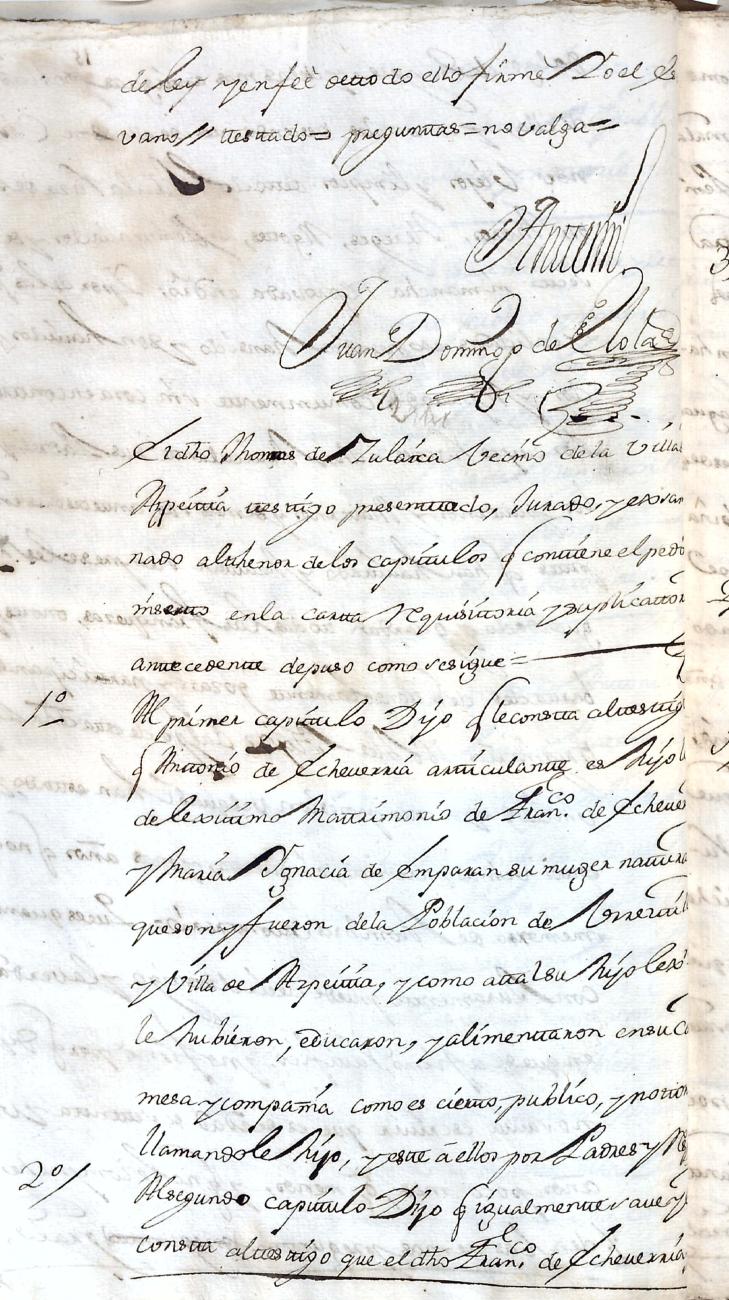 de ley y en feè de todo ello firmè Yo el Es
vano // testado = preguntas = no valga =
Antem
Juan Domingo de
El dho Thomas de Zulaica Vecino de la Villa
Azpeitia testigo presentado, Jurado, y exsami
nado al thenor de los capitulos q contiene el pedim
inserto en la carta requisitoria y suplicatton
antecedente depuso como se sigue =
1º Al primer capitulo Dijo q le consta al testigo
q Antonio de Echeverria articulante es hijo l
de lexitimo Matrimonio de Franco. de Echever
y Maria Ygnacia de Emparan su muger natura
que son y fueron de la Poblacion de Urrestill
y Villa de Azpeitia, y como a tal su hijo lexi
le hubieron, educaron, y alimentaron en su C
mesa y compañia como es cierto, publico, y notor
llamandole hijo, y este à ellos por Padres y
2º/ Al segundo capitulo Dijo q igualmente save y
consta al testigo que el dho Franco. de Echeverria